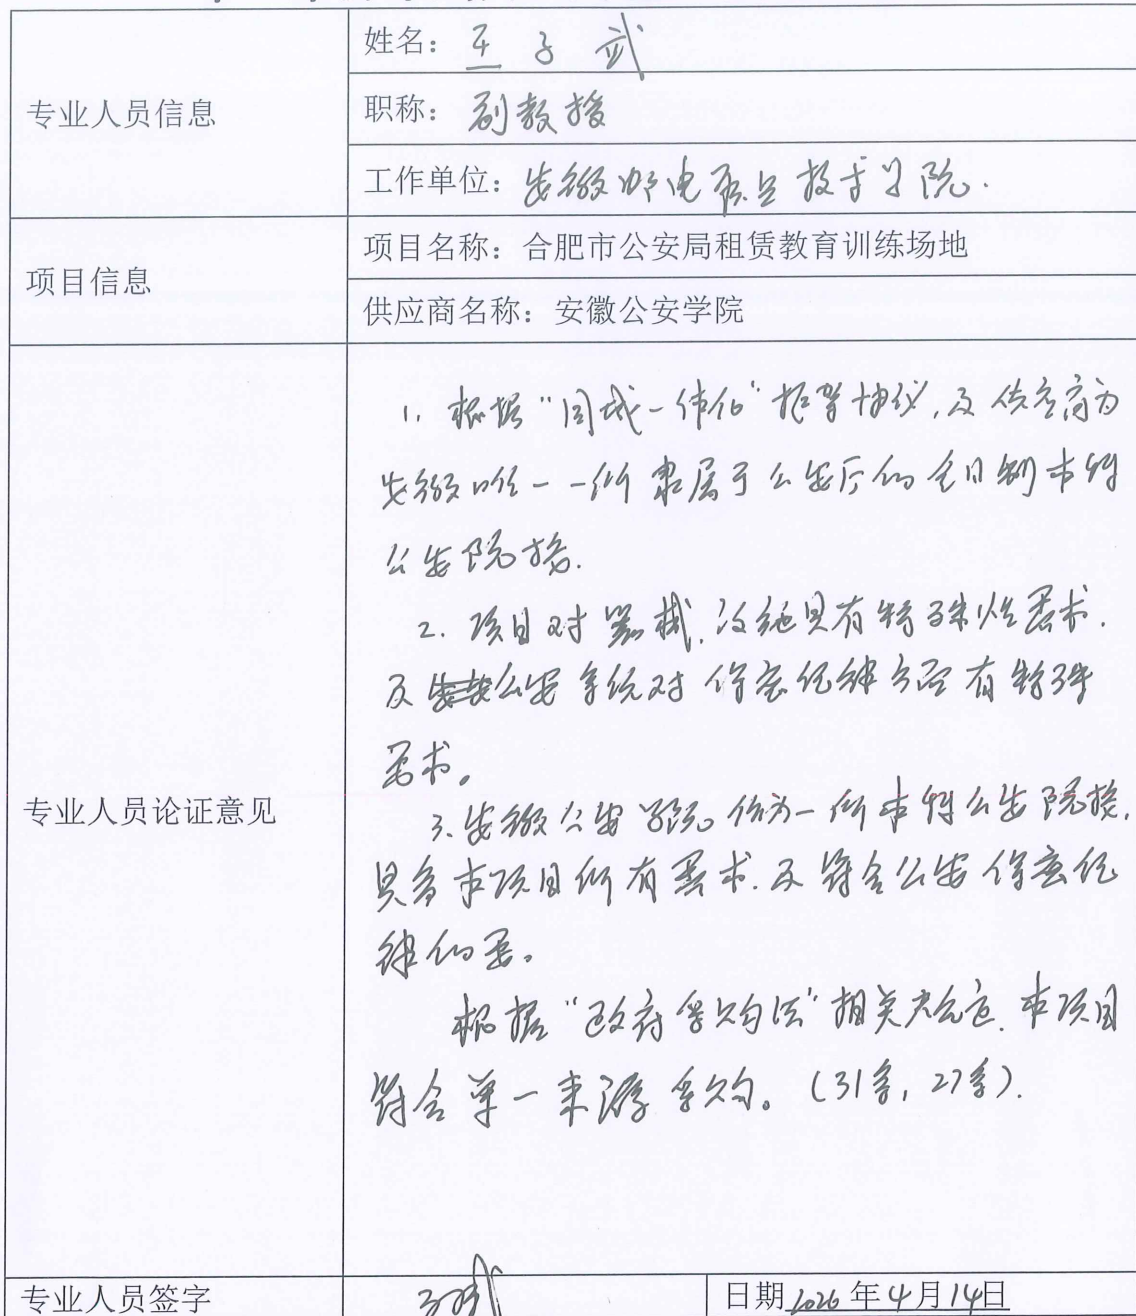 专业人员信息
姓名：王子武
职称：副教授
工作单位：安徽邮电职业技术学院.
项目信息
项目名称：合肥市公安局租赁教育训练场地
供应商名称：安徽公安学院
专业人员论证意见
1. 根据“同城一体化”框架协议,及供应商为
安徽唯一一所隶属于公安厅的全日制本科
公安院校.
2. 项目对器械,设施具有特殊性要求.
及公安系统对保密纪律方面有特殊
要求。
3. 安徽公安学院作为一所本科公安院校,
具备本项目所有要求.及符合公安保密纪
律的要。
根据“政府采购法”相关规定.本项目
符合单一来源采购。(31条, 27条).
专业人员签字
日期 2026年4月14日